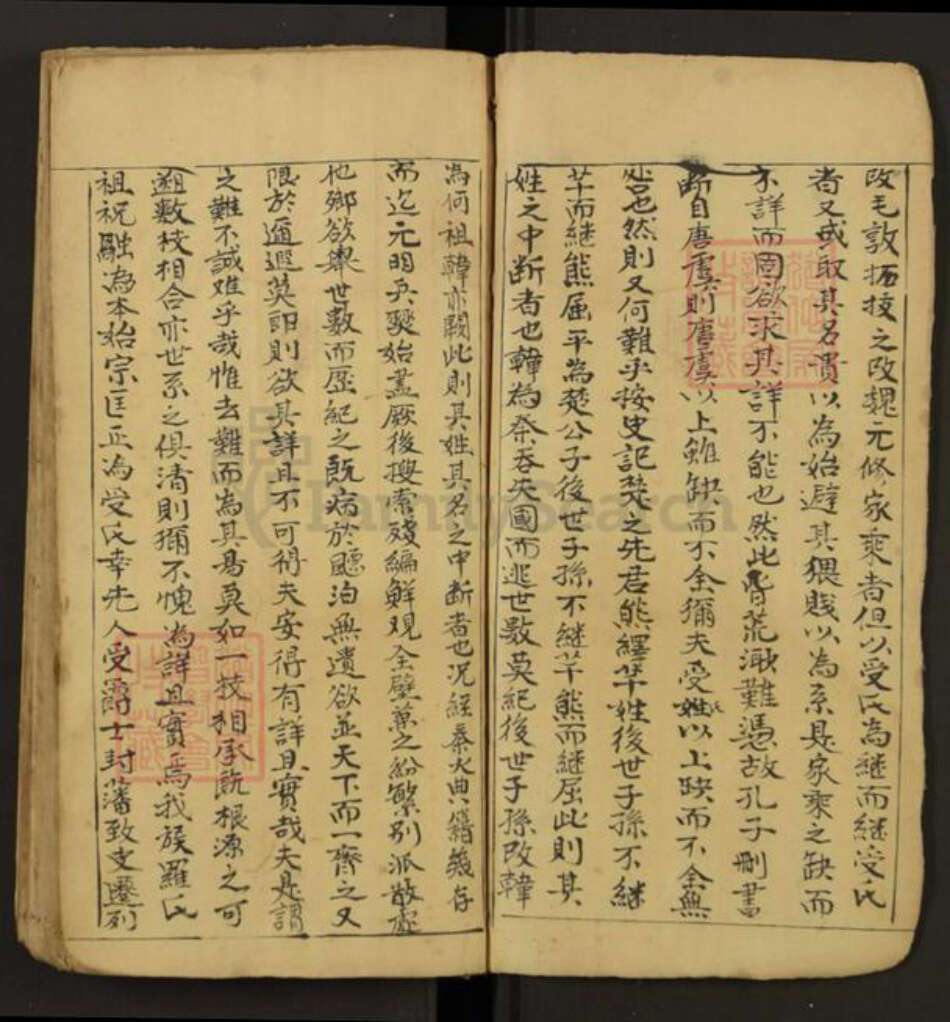 改毛敦拓技之改魏元修家乘者但以受氏為継而継受氏
者又或取其名貫以為始避其猥賤以為系是家乘之缺而
不詳而固欲求其詳不能也然此皆荒澉難憑故孔子刪書
断自唐虞則唐虞以上雖缺而不全獮夫受姓氏以上缺而不全無
処也然則又何難乎按史記楚之先君熊繹芊姓後世子孫不継
芊而継熊屈平為楚公子後世子孫不継芊熊而継屈此則其
姓之中断者也韓為秦吞失國而逃世数莫紀後世子孫改韓
為何祖韓亦闕此則其姓其名之中断者也况経秦火典籍幾存
而迄元明兵燹始盖厥後搜索殘編鮮观全壁兼之紛繁别派散處
他鄉欲舉世數而歷紀之既病於飄泊無遺欲並天下而一齊之又
限於遁遐莫即則欲其詳且不可得夫安得有詳且實哉夫是謂
之難不誠难乎哉惟去難而為其易莫如一枝相承既根源之可
遡数枝相合亦世系之俱清則獮不愧為詳且實焉我族羅氏
祖祝融為本始宗匡正為受氏幸先人受爵士封藩致史遷列
FamilySearch